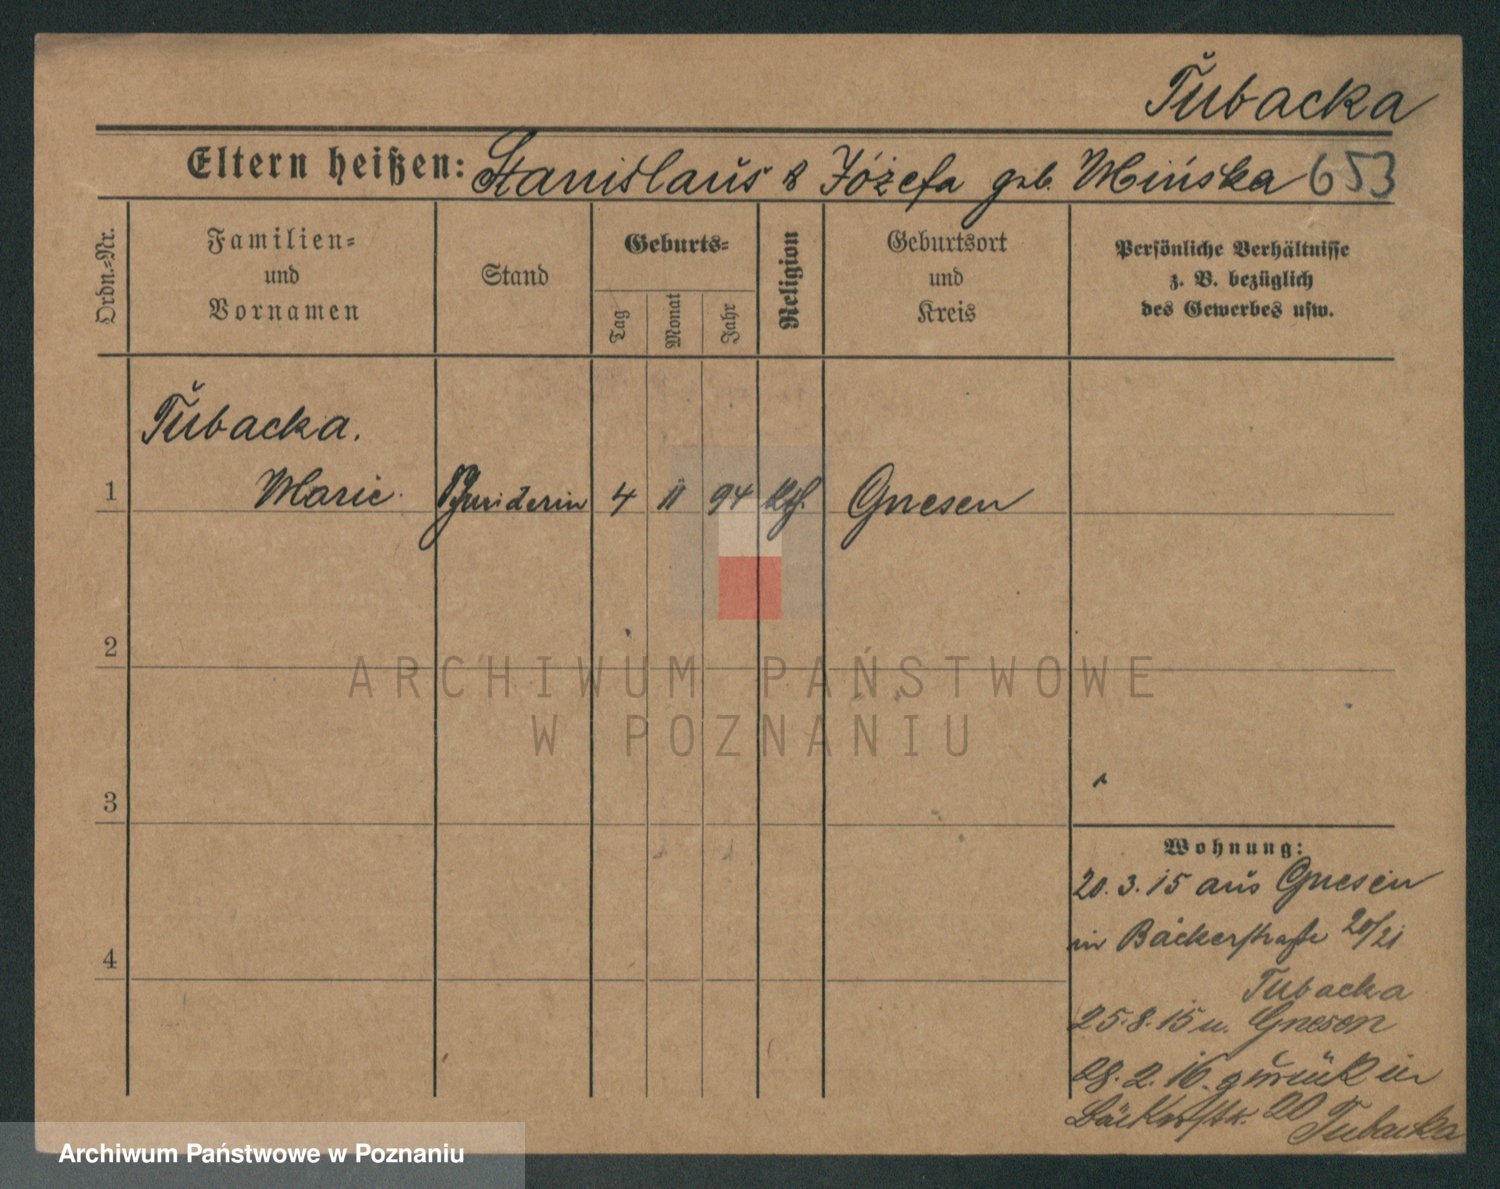 Tŭbacka
Eltern heißen: Stanislaŭs & Józefa geb. Mińska 653
Ordn.-Nr.
Familien-
und
Vornamen
Stand
Geburts-
Tag
Monat
Jahr
Religion
Geburtsort
und
Kreis
Persönliche Verhältnisse
z. B. bezüglich
des Gewerbes usw.
Tŭbacka.
1 Marie. 4 11 94 kth. Gnesen
2
ARCHIWUM PAŃSTWOWE
W POZNANIU
3
Wohnung:
20.3.15 aŭs Gnesen
in Bäckerstraße 20/21
4
Tubacka
25.8.15 n. Gnesen
28.2.16 zŭrück in
Bäckerstr. 20 Tubacka
Archiwum Państwowe w Poznaniu